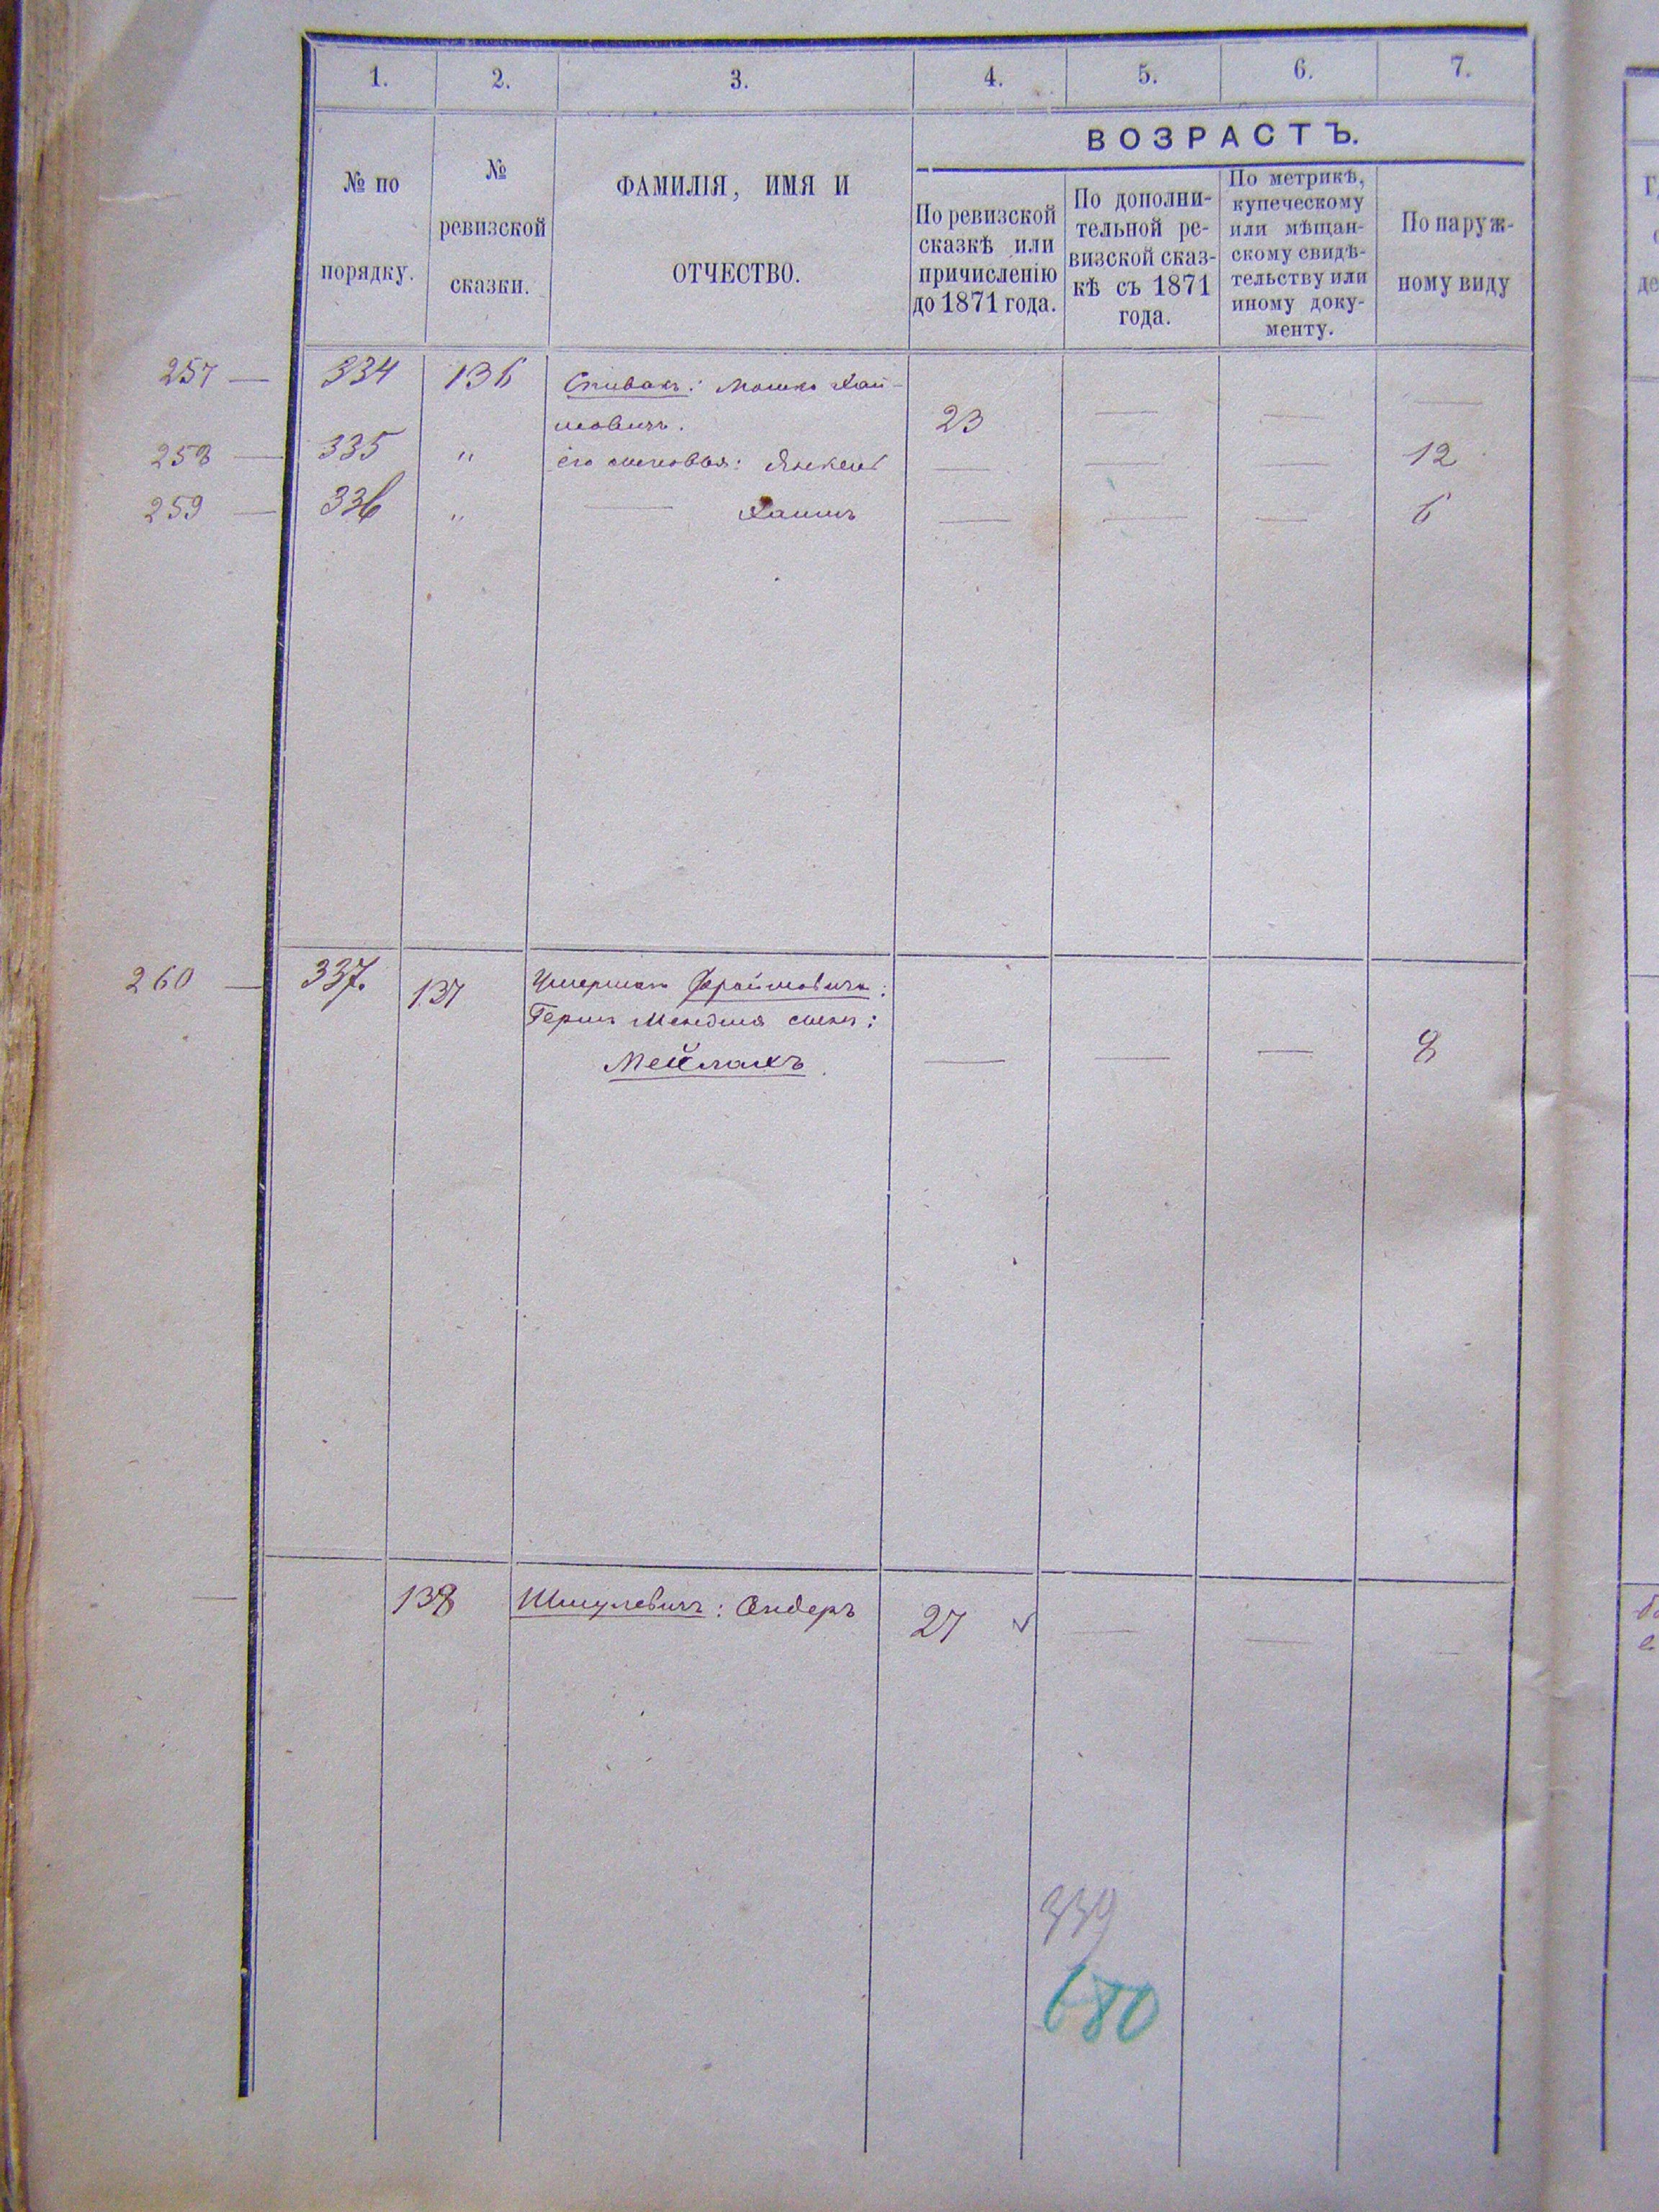 1. 2. 3. 4. 5. 6. 7.
№ по порядку.
№ ревизской сказки.
ФАМИЛІЯ, ИМЯ И ОТЧЕСТВО.
ВОЗРАСТЪ.
По ревизской сказкѣ или причисленію до 1871 года.
По дополни-тельной ре-визской сказ-кѣ съ 1871 года.
По метрикѣ, купеческому или мѣщан-скому свидѣ-тельству или иному доку-менту.
По наруж-ному виду
257 — 334 136 Спивакъ: Мошко Хаи-
мовичъ. 23 — — —
258 — 335 " его сыновья: Янкель — — — 12
259 — 336 " — Хаимъ — — — 6
260 — 337. 137 Умершаго Фроимовича:
Герша Менделя сынъ:
Мейлахъ. — — — 8
— 138 Шмулевичъ: Сндеръ 27 — — —
339
680